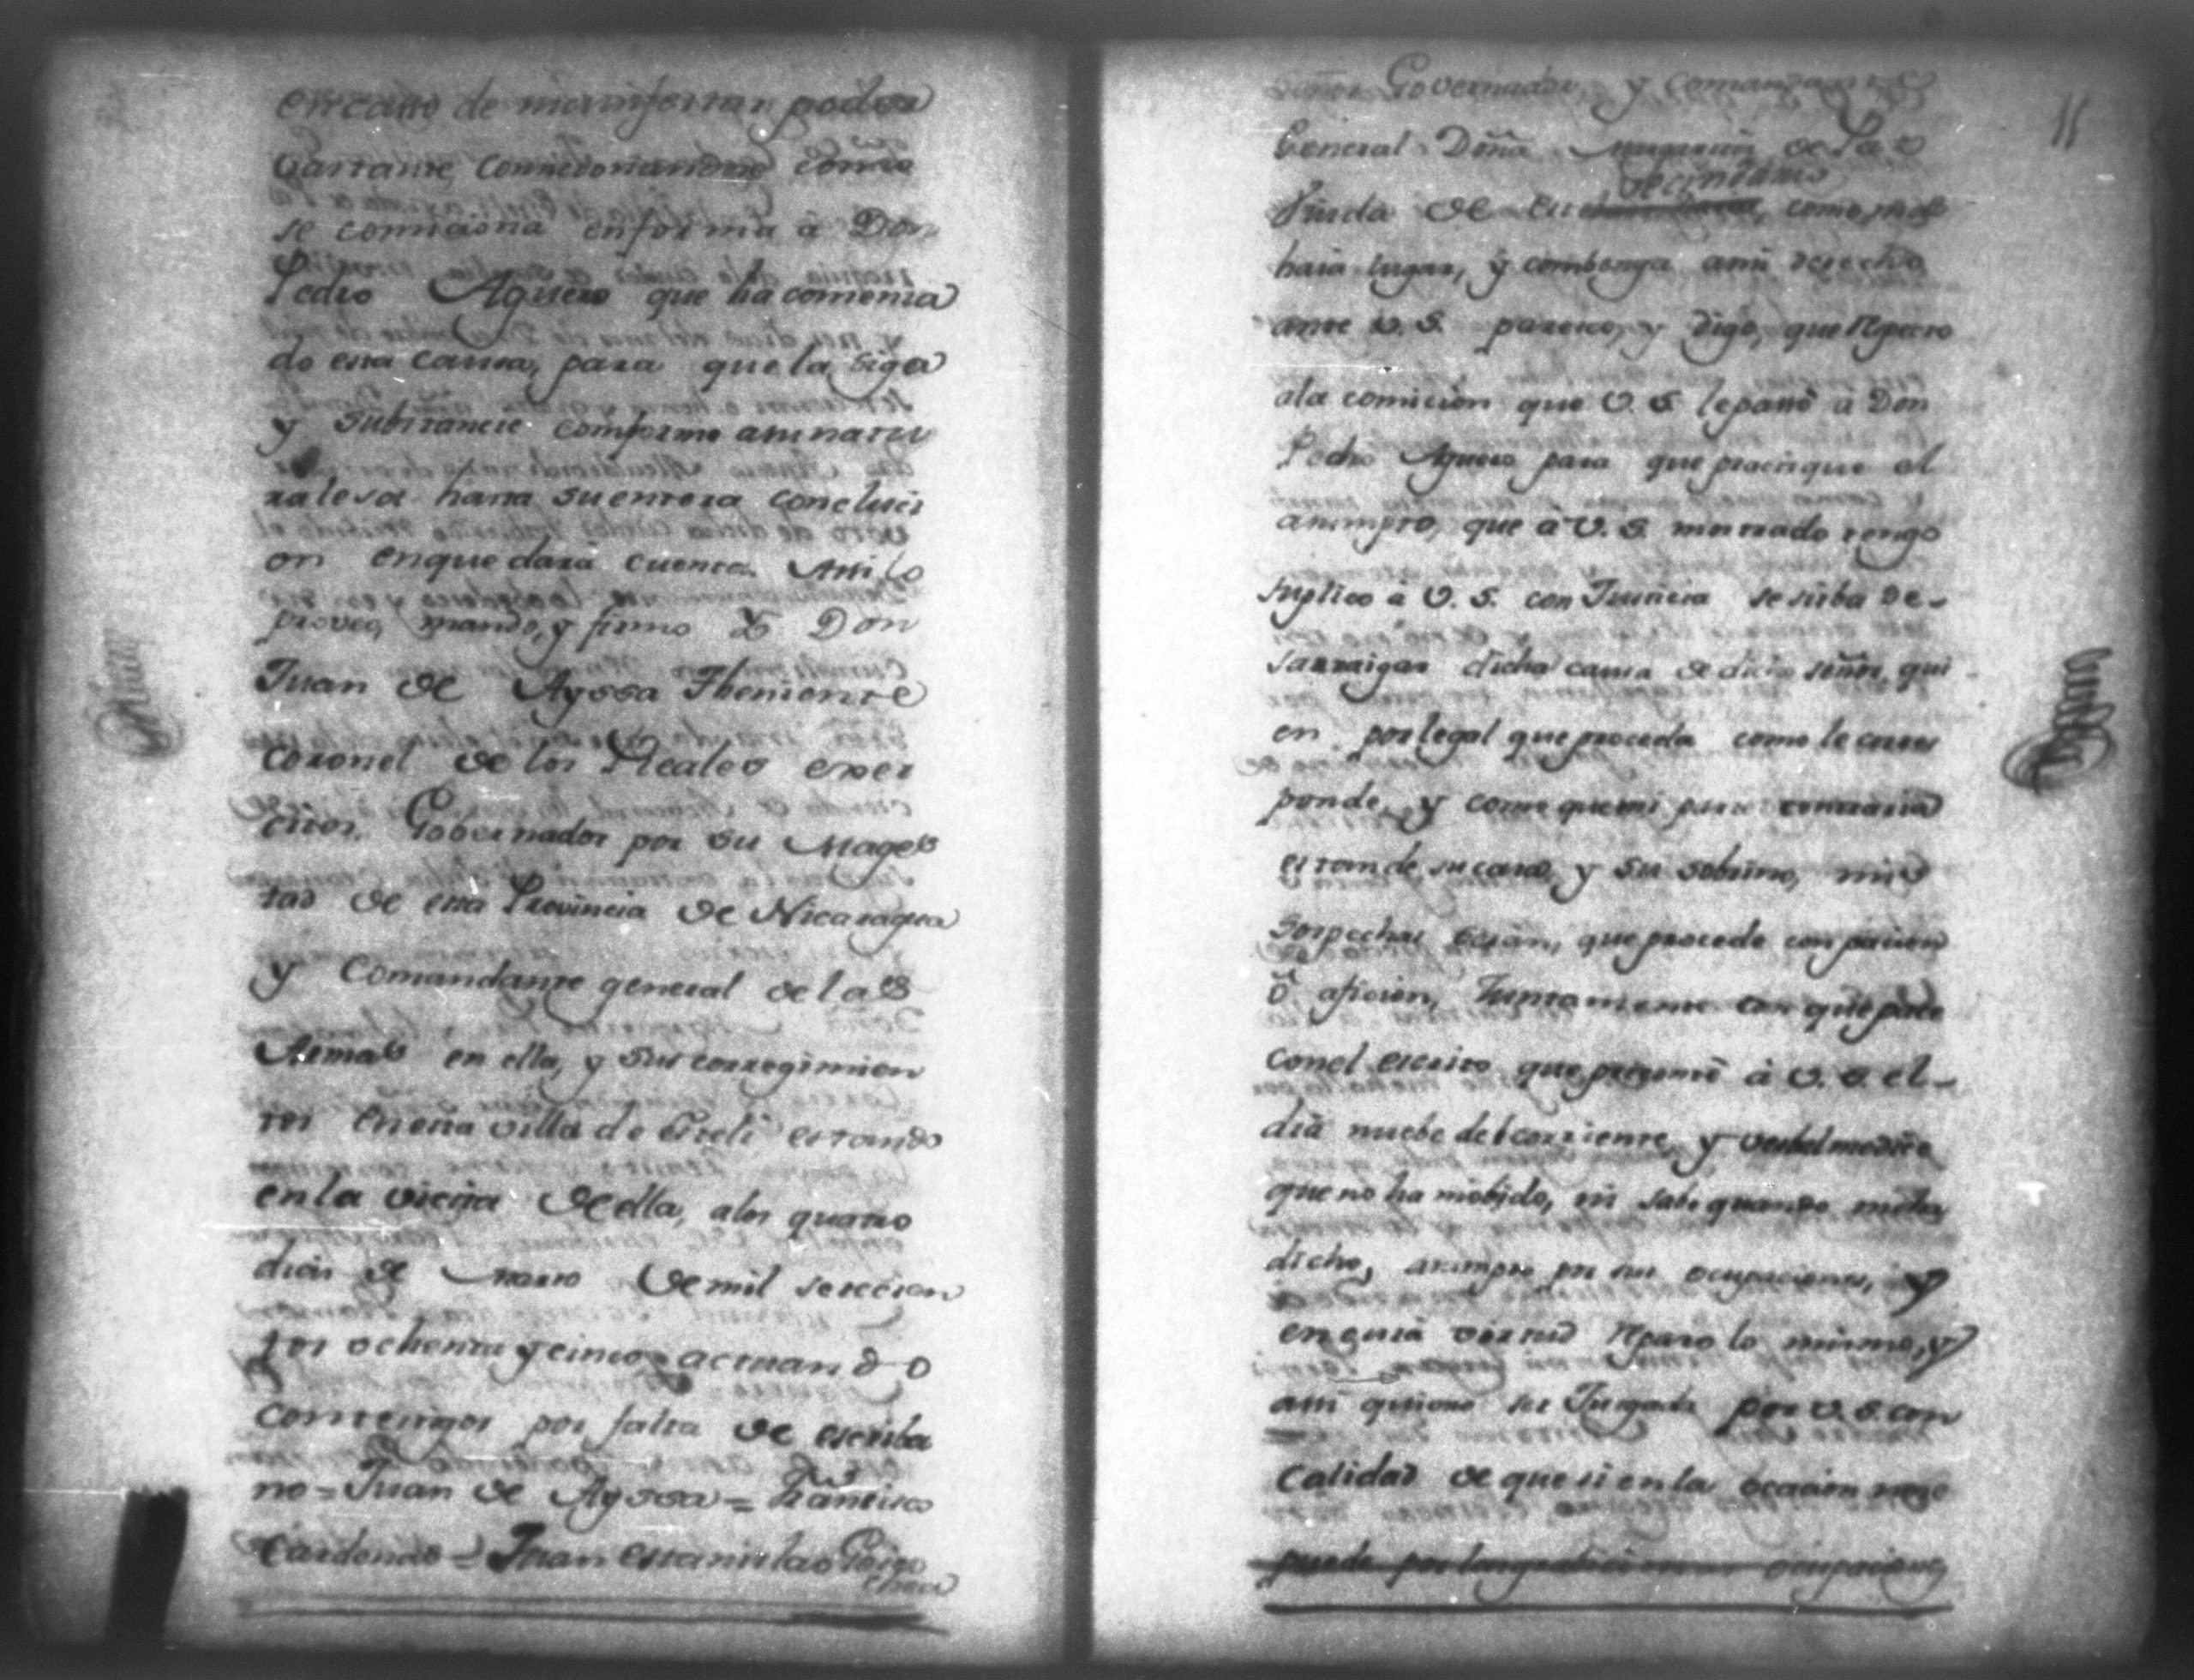 en caso de manifestar poder
bastante comicionandose como
se comiciona enforma à Don
Pedro Aguero que ha comensa
do esta causa, para que la siga
y substancie conforme asunatu
ralesa hasta su entera conclusi
on en que dara cuenta. Assi lo
proveo, mando, y firmo Yo Don
Juan de Ayssa Theniente
Coronel de los Reales exer
citos. Gobernador por su Mages
tad de esta Provincia de Nicaragua
y Comandante general de las
Armas en ella, y sus corregimien
tos en esta villa de Esteli estando
en la vicita de ella, a los quatro
dias de Marzo de mil setecien
tos ochenta y cinco, actuando
con testigos por falta de escriba
no = Juan de Ayssa = Francisco
Cardenas = Juan Estanislao Goico
chea
11
Señor Governador y Comandante
General Doña de Paz
vecindario
Viuda de este, como mas
haia lugar, y combenga ami derecho
ante V. S. paresco, y digo, que Reparo
ala comicion que V. S. le passò à Don
Pedro Aguero para que practique el
asumpto, que à V. S. mostrado tengo
suplico à V. S. con Justicia se sirba de-
sarraigar dicha causa de dicho señor, qui
en por legal que proceda como le corres
ponde, y como que mi parte contraria
estando en su casa, y su sobrino, mis
sospechas seràn, que procede con pacion
ò aficion, Juntamente con que pase
con el escrito que presentè à V. S. el-
dia nuebe del corriente, y
que no ha recibido, ni sabe quando
dicho, asumpto por sus ocupaciones, y
en cuia virtud Reparo lo mismo, y
assi quiero ser Jusgada por V. S. con
calidad de que si en la ocacion no se
puede por ocupaciones